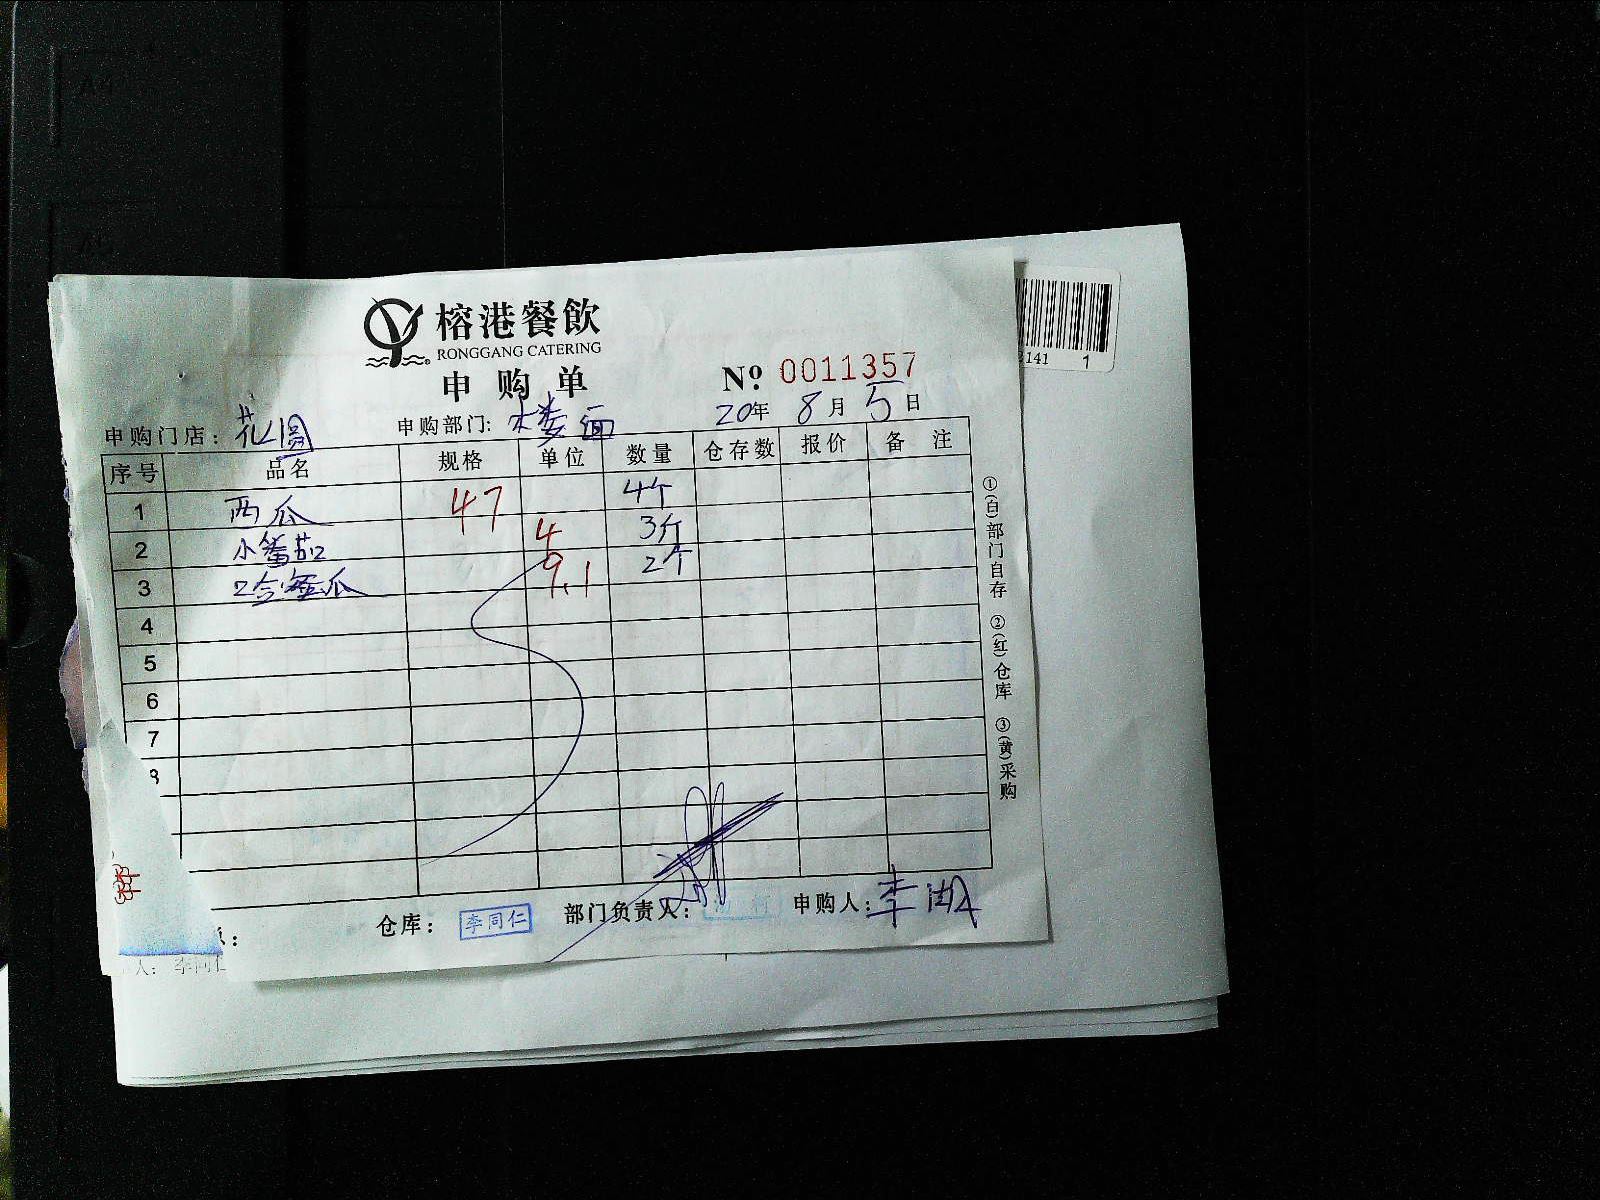 榕港餐飲
RONGGANG CATERING
申购单
Nº 0011357
20年 8月 5日
申购门店: 花园 申购部门: 楼面
序号 品名 规格 单位 数量 仓存数 报价 备注
1 西瓜 47 4个
2 小番茄 4 3斤
3 哈蜜瓜 9.1 2个
4
5
6
7
8
①(白)部门自存 ②(红)仓库 ③(黄)采购
仓库: 李同仁 部门负责人: 申购人: 李湖
人: 李同仁
2141 1
A4
A5